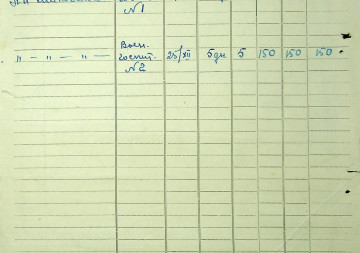 №1
" — " — " — " Воен. госпит. №2 25/XII 5 дн 5 150 150 150